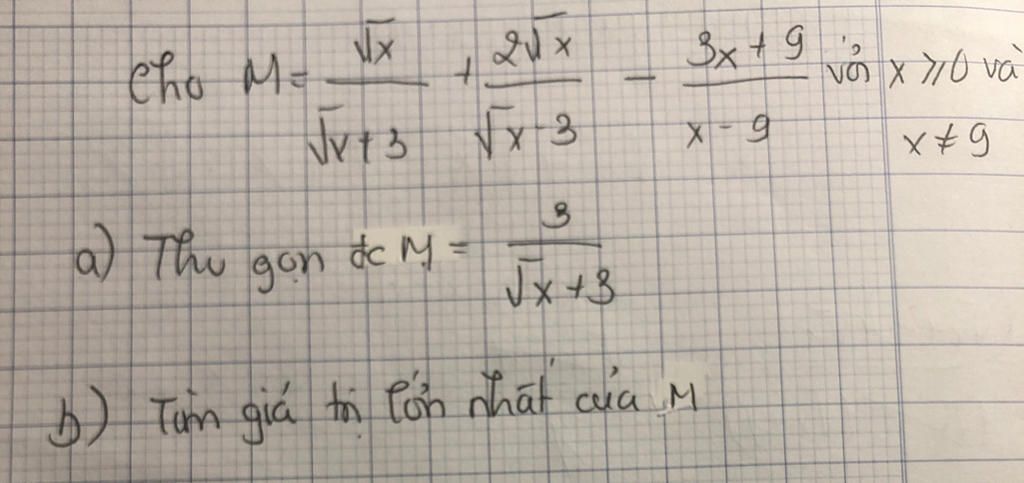 Cho M = \frac{\sqrt{x}}{\sqrt{x}+3} + \frac{2\sqrt{x}}{\sqrt{x}-3} - \frac{3x+9}{x-9} với x ⩾ 0 và
x ≠ 9
a) Thu gọn đc M = \frac{3}{\sqrt{x}+3}
b) Tìm giá trị lớn nhất của M